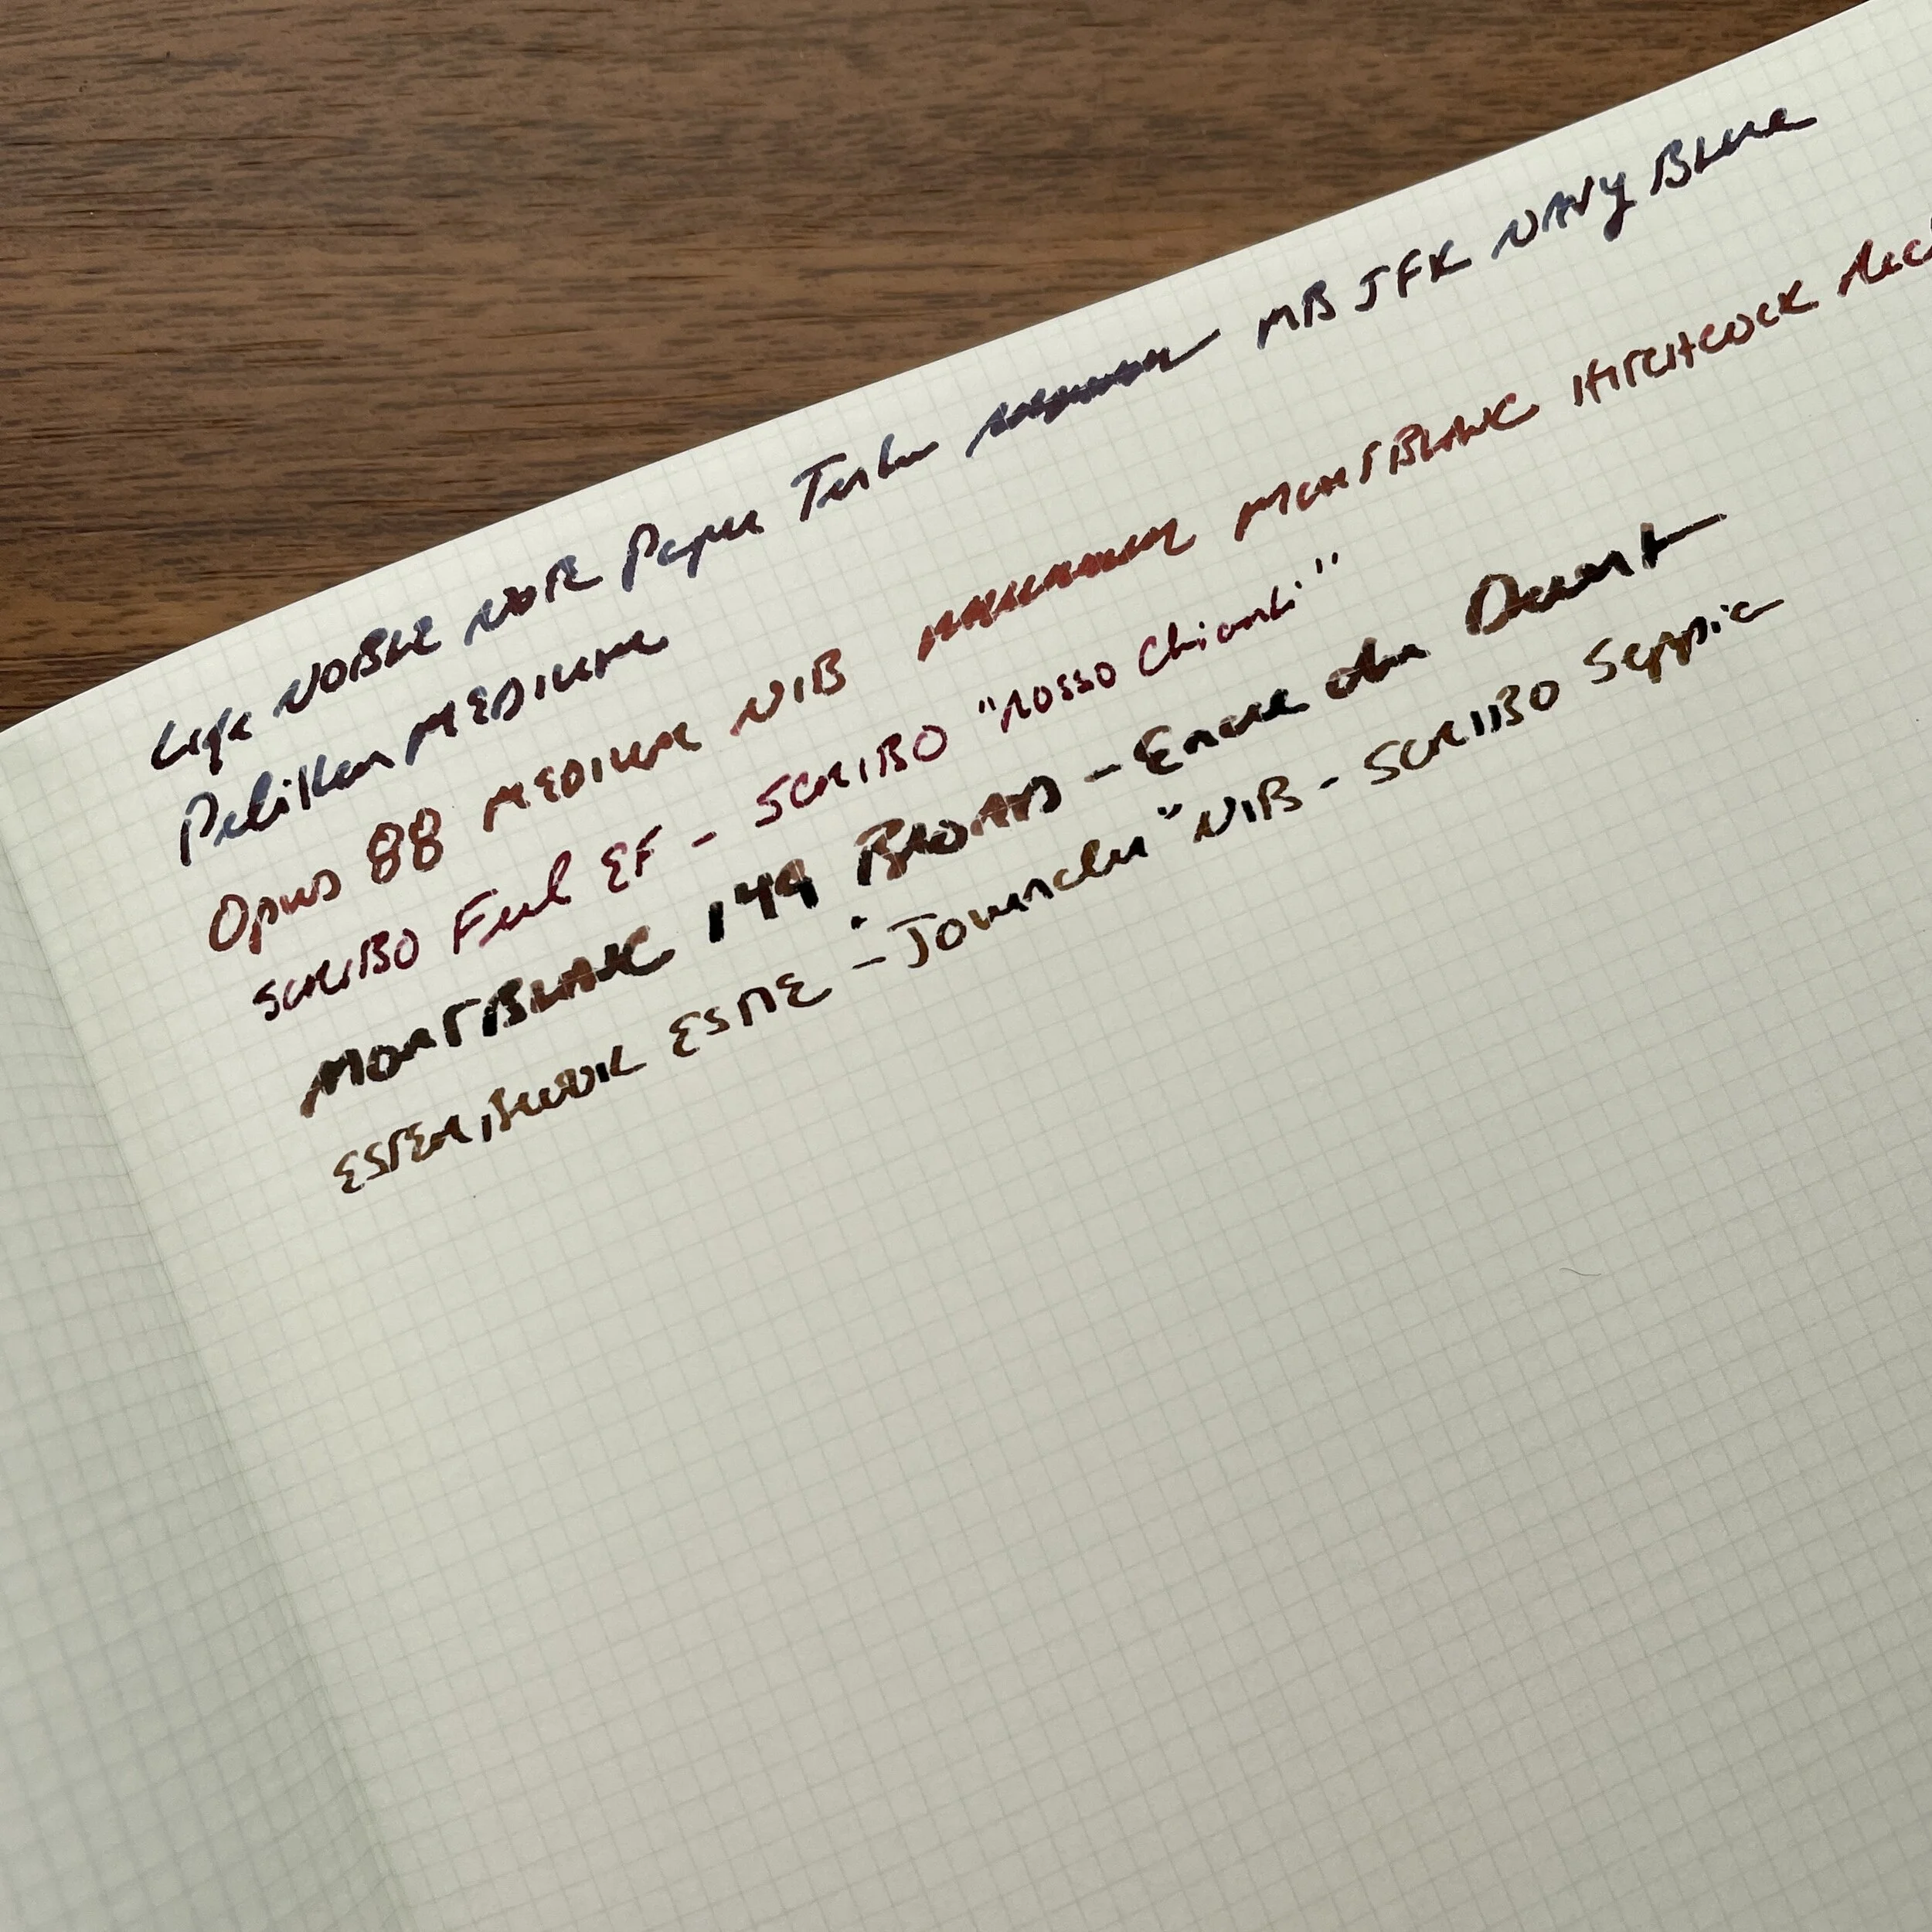 Life NOBLE NOTE Paper Tester MB JFK NAVY BLUE
Pelikan MEDIUM
Opus 88 MEDIUM NIB MONTBLANC HITCHCOCK Red
SCRIBO Feel EF - SCRIBO "Rosso Chianti"
MONTBLANC 149 BROAD - Encre du Desert
ESTERBROOK ESTIE - "Journaler" NIB - SCRIBO Seppia